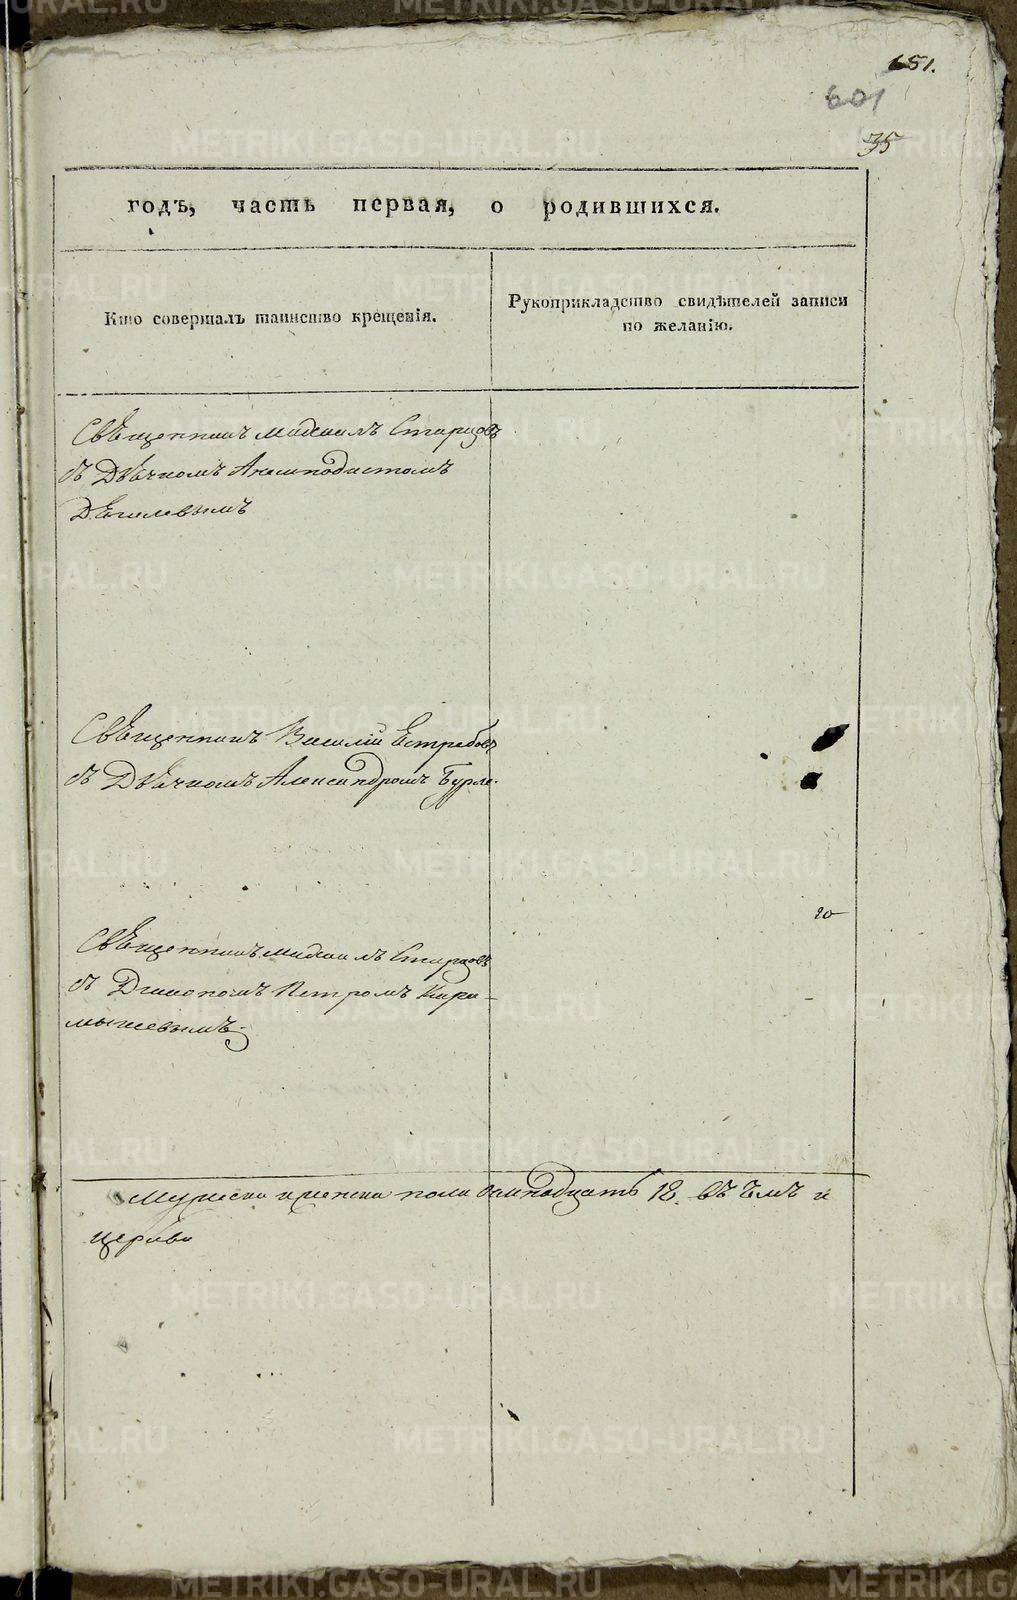 651.
601
35
годъ, часть первая, о родившихся.
Кто совершалъ таинство крещенія.
Рукоприкладство свидѣтелей записи
по желанію.
Священникъ Михаилъ Старцовъ
съ Дьячкомъ Анемподистомъ
Дягилевымъ
Священникъ Василій Ястребовъ
съ Дьячкомъ Александромъ
Священникъ Михаилъ Старцовъ
съ Діакономъ Петромъ
20
Мужеска и женска пола 18 въ
церкви
METRIKI.GASO-URAL.RU